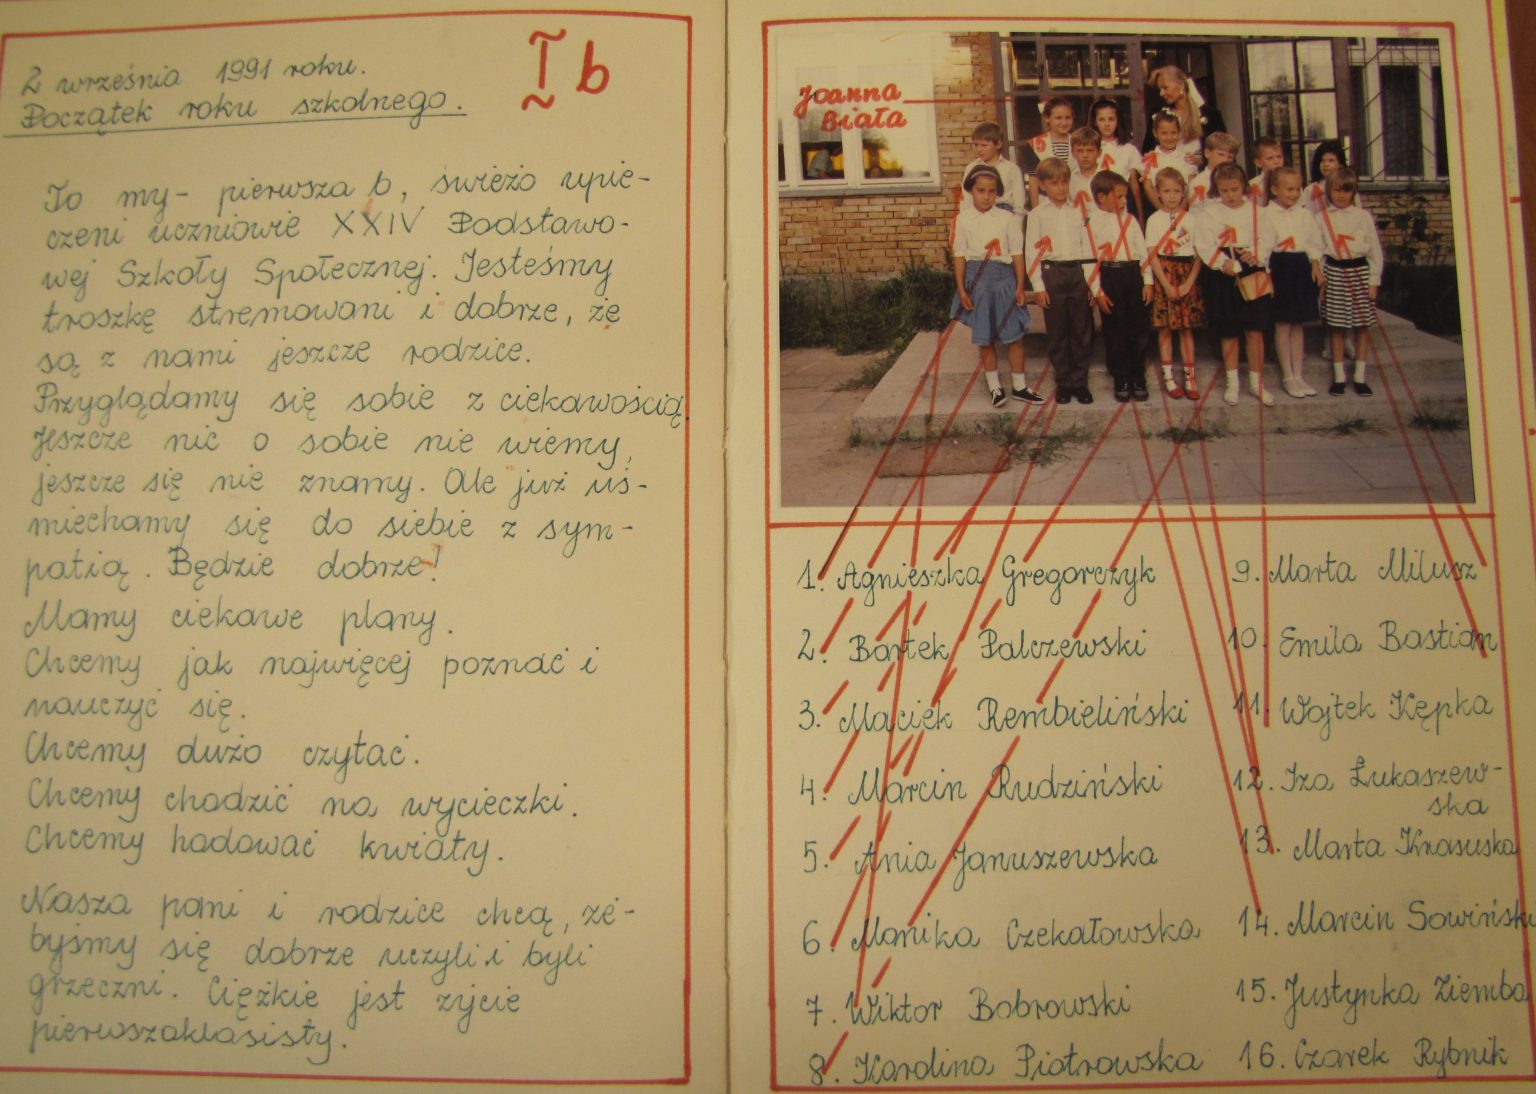 2 września 1991 roku.
Początek roku szkolnego.
I b
To my - pierwsza b, świeżo upie-
czeni uczniowie XXIV Podstawo-
wej Szkoły Społecznej. Jesteśmy
troszkę stremowani i dobrze, że
są z nami jeszcze rodzice.
Przyglądamy się sobie z ciekawością.
Jeszcze nic o sobie nie wiemy,
jeszcze się nie znamy. Ale już uś-
miechamy się do siebie z sym-
patią. Będzie dobrze!
Mamy ciekawe plany.
Chcemy jak najwięcej poznać i
nauczyć się.
Chcemy dużo czytać.
Chcemy chodzić na wycieczki.
Chcemy hodować kwiaty.
Nasza pani i rodzice chcą, że-
byśmy się dobrze uczyli i byli
grzeczni. Ciężkie jest życie
pierwszoklasisty.
Joanna
Biała
15
1. Agnieszka Gregorczyk
2. Bartek Palczewski
3. Maciek Rembieliński
4. Marcin Rudziński
5. Ania Januszewska
6. Monika Czekałowska
7. Wiktor Bobrowski
8. Karolina Piotrowska
9. Marta Milusz
10. Emila Bastian
11. Wojtek Kępka
12. Iza Łukaszew-
ska
13. Marta Krasuska
14. Marcin Sowiński
15. Justynka Ziemba
16. Czarek Rybnik